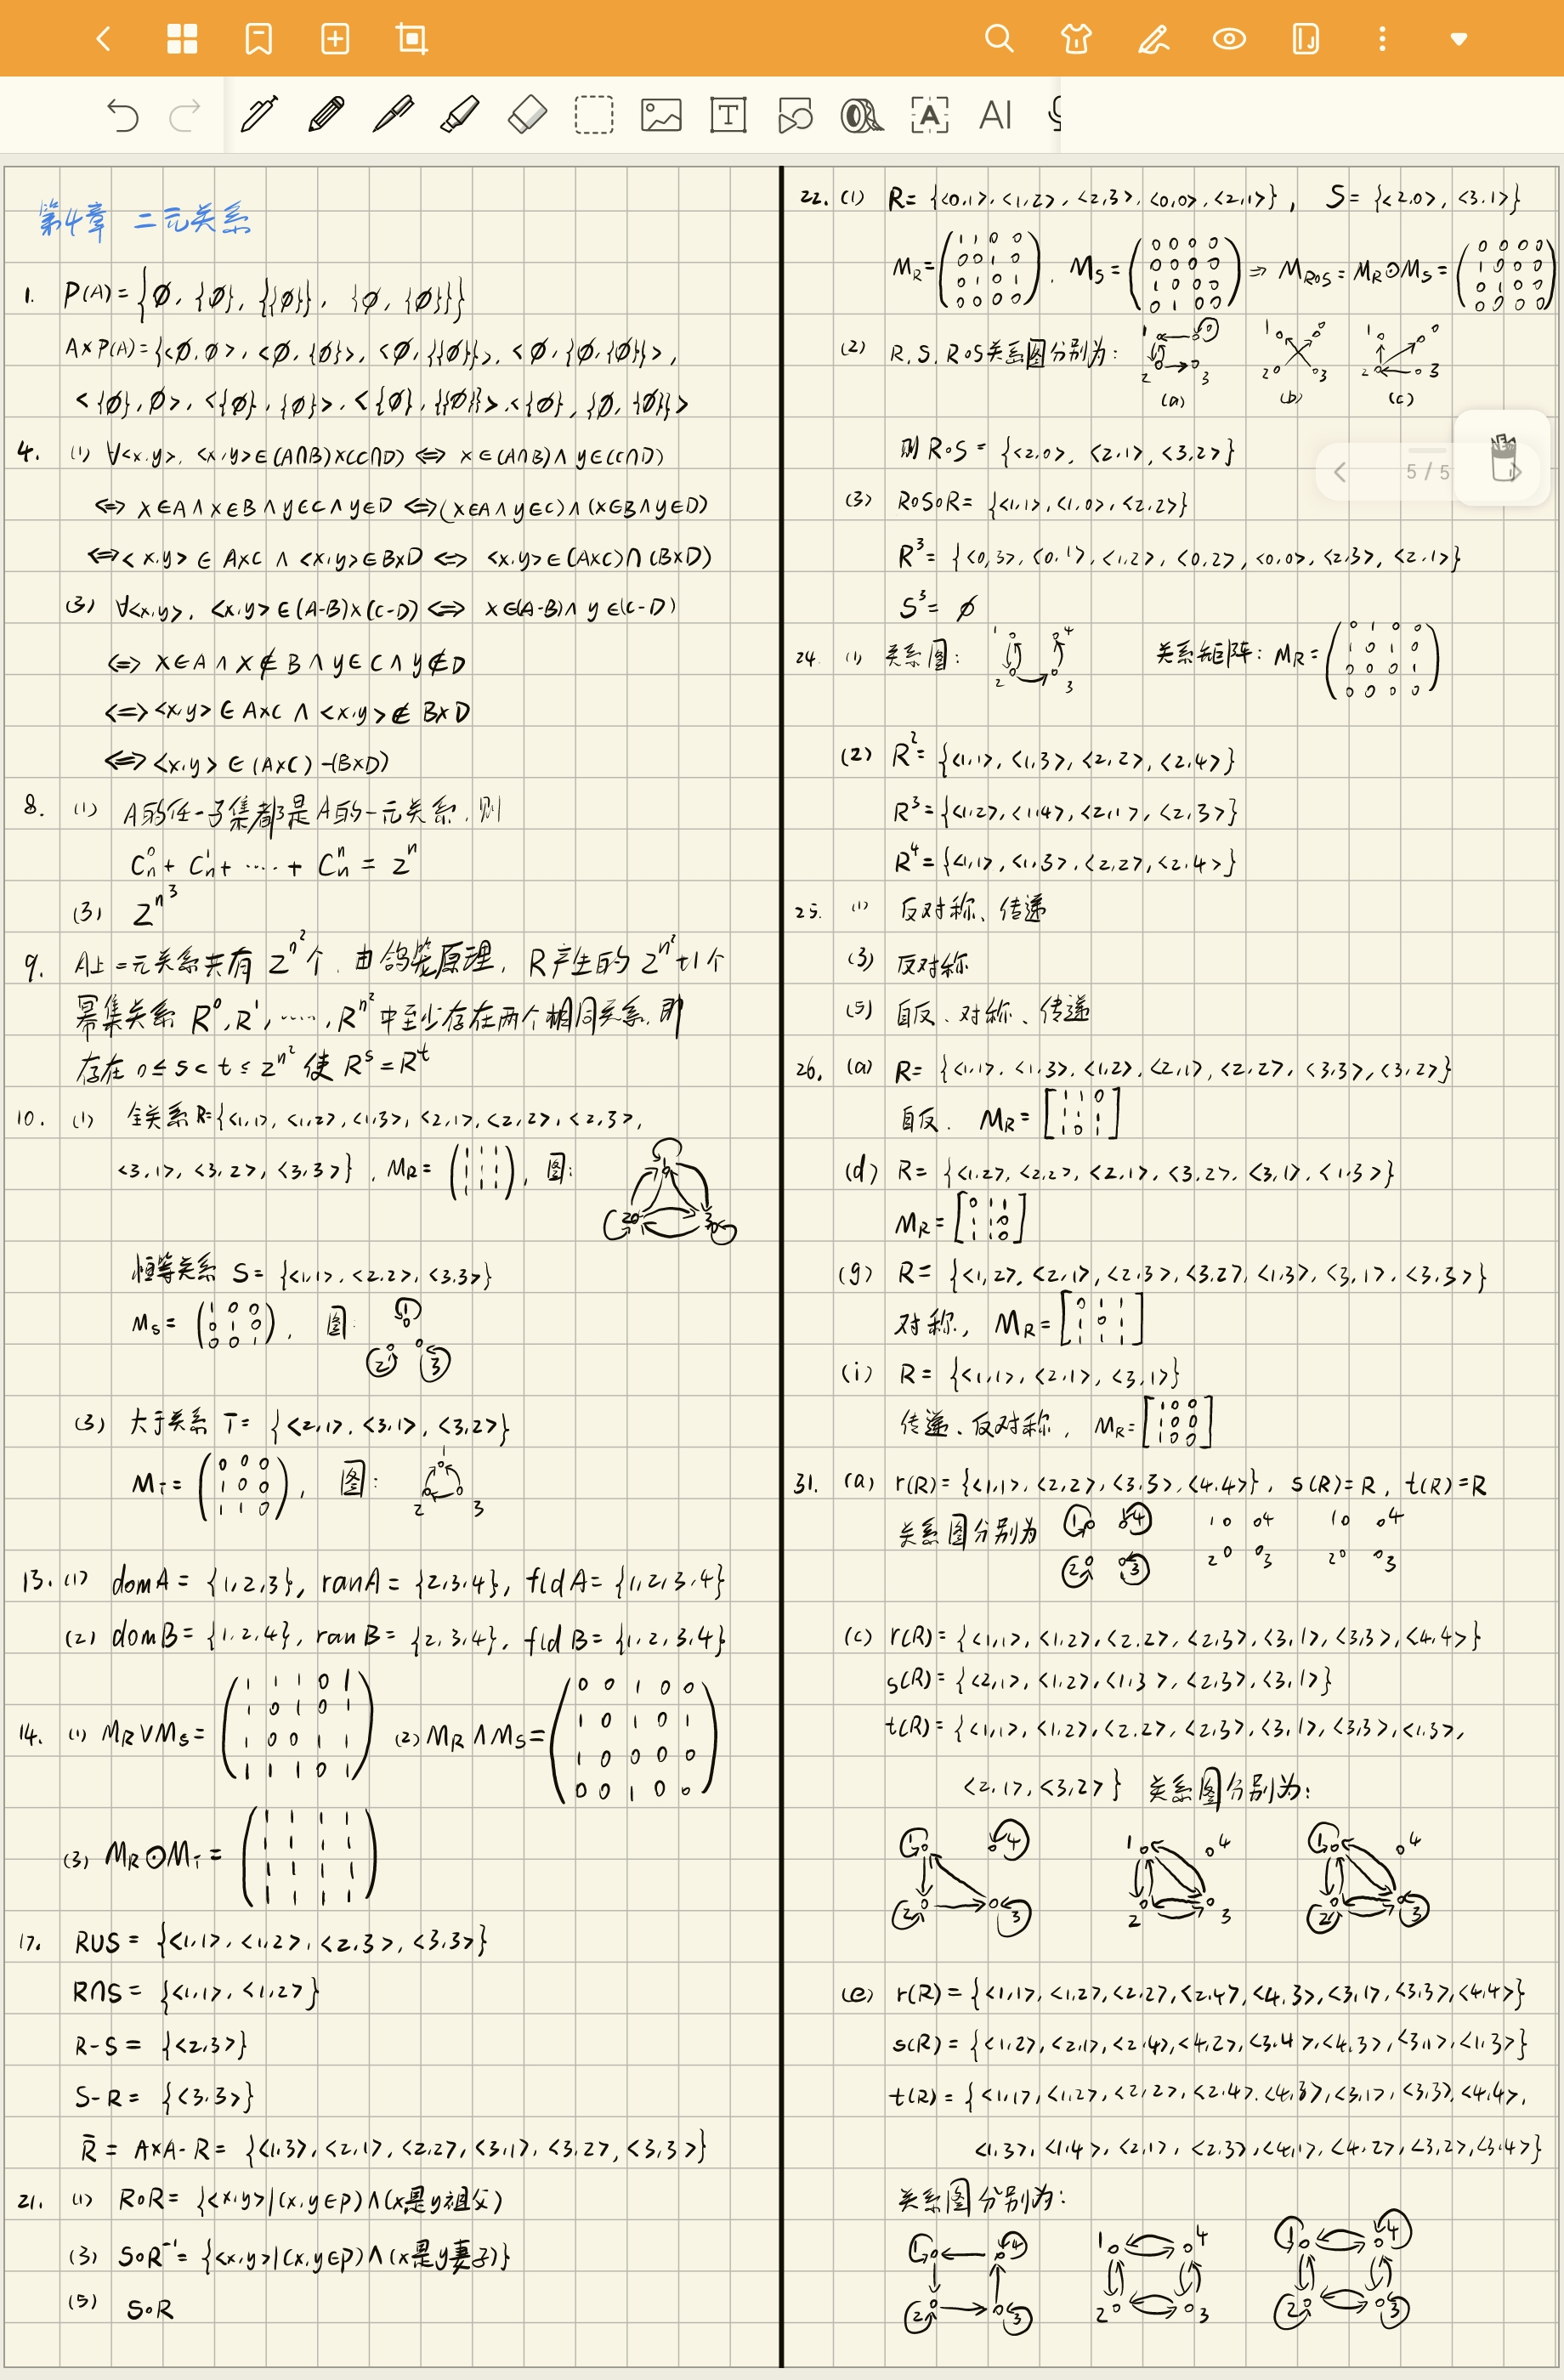 AI
5 / 5
第4章 二元关系
1. P(A)={∅, {∅}, {{∅}}, {∅, {∅}}}
A×P(A)={<∅,∅>, <∅,{∅}>, <∅,{{∅}}>, <∅,{∅,{∅}}>,
<{∅},∅>, <{∅},{∅}>, <{∅},{{∅}}>,<{∅},{∅,{∅}}>
4. (1) ∀<x,y>, <x,y>∈(A∩B)×(C∩D) ⇔ x∈(A∩B)∧y∈(C∩D)
⇔ x∈A∧x∈B∧y∈C∧y∈D ⇔(x∈A∧y∈C)∧(x∈B∧y∈D)
⇔<x,y>∈A×C ∧ <x,y>∈B×D ⇔ <x,y>∈(A×C)∩(B×D)
(3) ∀<x,y>, <x,y>∈(A-B)×(C-D) ⇔ x∈(A-B)∧y∈(C-D)
⇔ x∈A∧x∉B∧y∈C∧y∉D
⇔<x,y>∈A×C ∧ <x,y>∉B×D
⇔<x,y>∈(A×C)-(B×D)
8. (1) A的任一子集都是A的一元关系,则
Cn⁰+Cn¹+……+Cnⁿ=2ⁿ
(3) 2^n³
9. A上二元关系共有 2^n² 个,由鸽笼原理,R产生的 2^n²+1个
幂集关系 R⁰,R¹,……,R^n² 中至少存在两个相同关系,即
存在 0≤s<t≤2^n² 使 R^s=R^t
10. (1) 全关系R={<1,1>,<1,2>,<1,3>,<2,1>,<2,2>,<2,3>,
<3,1>,<3,2>,<3,3>}, MR=(1 1 1
1 1 1
1 1 1), 图:
1
2 3
恒等关系 S={<1,1>,<2,2>,<3,3>}
MS=(1 0 0
0 1 0
0 0 1), 图:
1
2 3
(3) 大于关系 T={<2,1>,<3,1>,<3,2>}
MT=(0 0 0
1 0 0
1 1 0), 图:
1
2 3
13.(1) domA={1,2,3}, ranA={2,3,4}, fldA={1,2,3,4}
(2) domB={1,2,4}, ranB={2,3,4}, fldB={1,2,3,4}
14. (1) MR∨MS=(1 1 1 0 1
1 0 1 0 1
1 0 0 1 1
1 1 1 0 1) (2) MR∧MS=(0 0 1 0 0
1 0 1 0 1
1 0 0 0 0
0 0 1 0 0)
(3) MR⊙MT=(1 1 1 1
1 1 1 1
1 1 1 1
1 1 1 1)
17. R∪S={<1,1>,<1,2>,<2,3>,<3,3>}
R∩S={<1,1>,<1,2>}
R-S={<2,3>}
S-R={<3,3>}
R̄=A×A-R={<1,3>,<2,1>,<2,2>,<3,1>,<3,2>,<3,3>}
21. (1) R∘R={<x,y>|(x,y∈P)∧(x是y祖父)
(3) S∘R⁻¹={<x,y>|(x,y∈P)∧(x是y妻子)}
(5) S∘R
22.(1) R={<0,1>,<1,2>,<2,3>,<0,0>,<2,1>}, S={<2,0>,<3,1>}
MR=(1 1 0 0
0 0 1 0
0 1 0 1
0 0 0 0), MS=(0 0 0 0
0 0 0 0
1 0 0 0
0 1 0 0) ⇒ MR∘S=MR⊙MS=(0 0 0 0
1 0 0 0
0 1 0 0
0 0 0 0)
(2) R,S,R∘S关系图分别为:
1 0 2 3 1 0 2 3 1 0 2 3
(a) (b) (c)
则R∘S={<2,0>,<2,1>,<3,2>}
(3) R∘S∘R={<1,1>,<1,0>,<2,2>}
R³={<0,3>,<0,1>,<1,2>,<0,2>,<0,0>,<2,3>,<2,1>}
S³=∅
24. (1) 关系图: 1 4 2 3 关系矩阵: MR=(0 1 0 0
1 0 1 0
0 0 0 1
0 0 0 0)
(2) R²={<1,1>,<1,3>,<2,2>,<2,4>}
R³={<1,2>,<1,4>,<2,1>,<2,3>}
R⁴={<1,1>,<1,3>,<2,2>,<2,4>}
25. (1) 反对称、传递
(3) 反对称
(5) 自反、对称、传递
26. (a) R={<1,1>,<1,3>,<1,2>,<2,1>,<2,2>,<3,3>,<3,2>}
自反. MR=[1 1 0
1 1 1
1 0 1]
(d) R={<1,2>,<2,2>,<2,1>,<3,2>,<3,1>,<1,3>}
MR=[0 1 1
1 1 0
1 1 0]
(g) R={<1,2>,<2,1>,<2,3>,<3,2>,<1,3>,<3,1>,<3,3>}
对称, MR=[0 1 1
1 0 1
1 1 1]
(i) R={<1,1>,<2,1>,<3,1>}
传递、反对称, MR=[1 0 0
1 0 0
1 0 0]
31. (a) r(R)={<1,1>,<2,2>,<3,3>,<4,4>}, s(R)=R, t(R)=R
关系图分别为
1 4 1 4 1 4
2 3 2 3 2 3
(c) r(R)={<1,1>,<1,2>,<2,2>,<2,3>,<3,1>,<3,3>,<4,4>}
s(R)={<2,1>,<1,2>,<1,3>,<2,3>,<3,1>}
t(R)={<1,1>,<1,2>,<2,2>,<2,3>,<3,1>,<3,3>,<1,3>,
<2,1>,<3,2>} 关系图分别为:
1 4 1 4 1 4
2 3 2 3 2 3
(e) r(R)={<1,1>,<1,2>,<2,2>,<2,4>,<4,3>,<3,1>,<3,3>,<4,4>}
s(R)={<1,2>,<2,1>,<2,4>,<4,2>,<3,4>,<4,3>,<3,1>,<1,3>}
t(R)={<1,1>,<1,2>,<2,2>,<2,4>,<4,3>,<3,1>,<3,3>,<4,4>,
<1,3>,<1,4>,<2,1>,<2,3>,<4,1>,<4,2>,<3,2>,<3,4>}
关系图分别为:
1 4 1 4 1 4
2 3 2 3 2 3